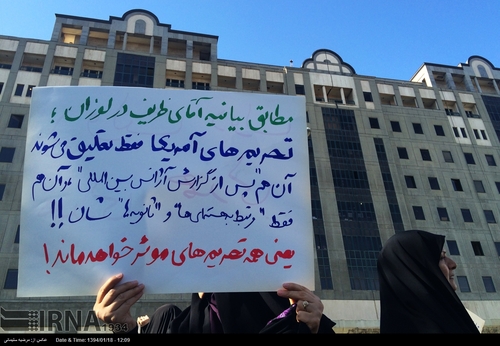 مطابق بیانیه آقای ظریف در لوزان ؛
تحریم های آمریکا فقط تعلیق می‌شوند
آن هم "پس از گزارش آژانس بین المللی" که آن هم
فقط "مرتبط هسته‌ای ها" و "ثانویه ها" شان !!
یعنی همه تحریم های موثر خواهد ماند !
IRNA 1934
عکس از: مرضیه سلیمانی
Date & Time: 1394/01/18 - 12:09